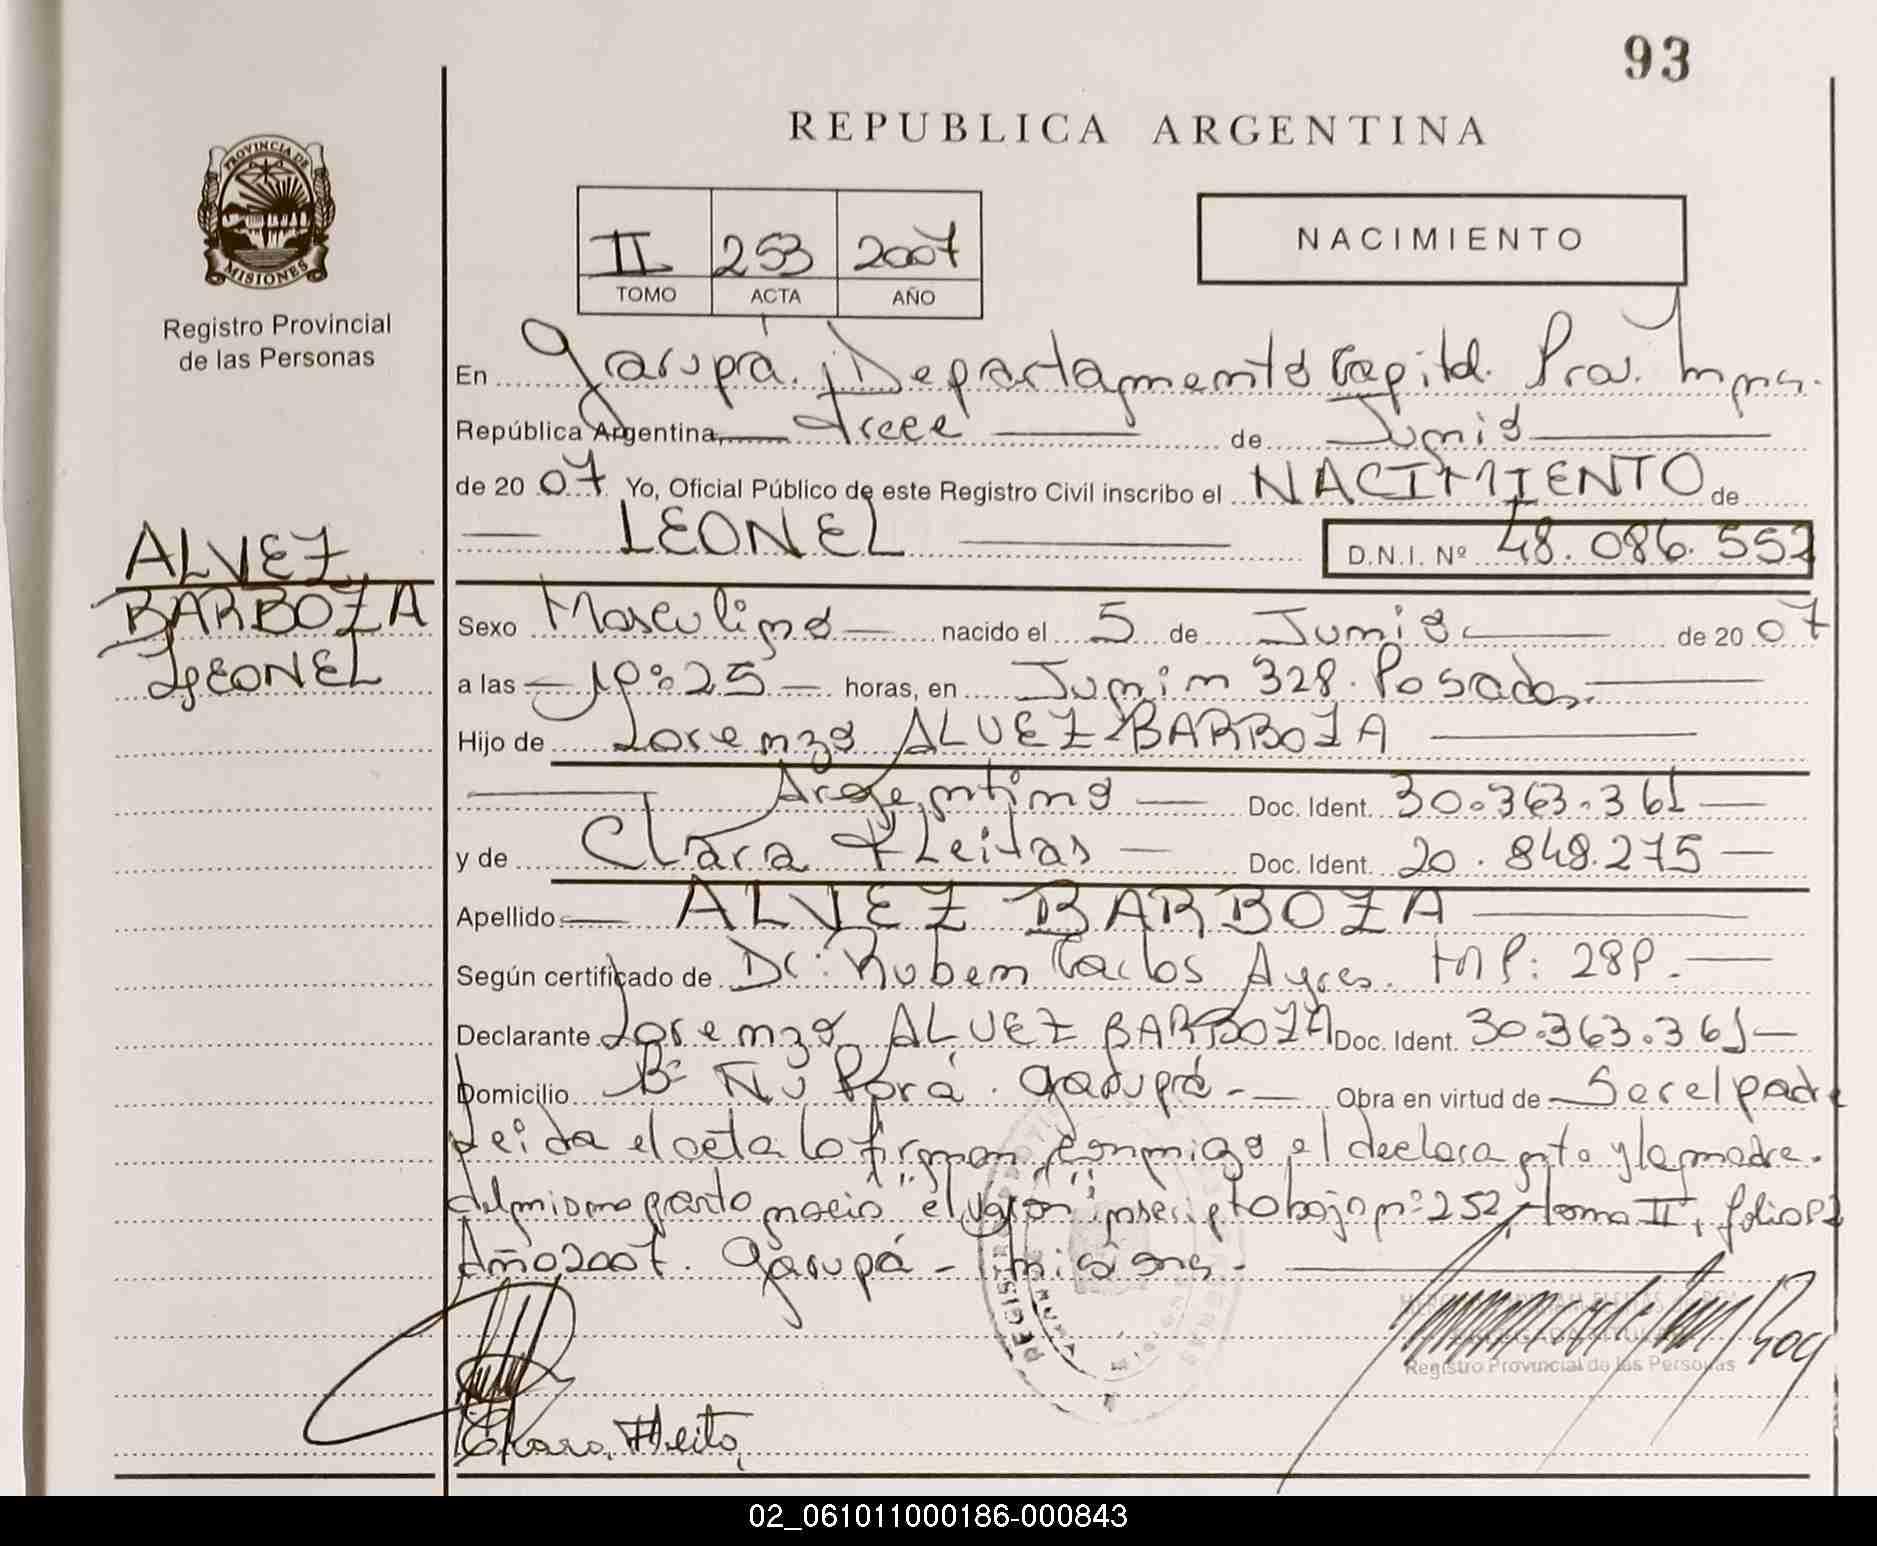 93
REPUBLICA ARGENTINA
PROVINCIA DE
MISIONES
Registro Provincial
de las Personas
II 253 2007
TOMO ACTA AÑO
NACIMIENTO
En Garupá, Departamento Capital. Prov. Mnes.
República Argentina, trece de Junio
de 2007 Yo, Oficial Público de este Registro Civil inscribo el NACIMIENTO de
LEONEL D.N.I. Nº 48.086.552
ALVEZ
BARBOZA
LEONEL
Sexo Masculino nacido el 5 de Junio de 2007
a las 19:25 horas, en Junin 328. Posadas.
Hijo de Lorenzo ALVEZ BARBOZA
Argentino Doc. Ident. 30.363.361
y de Clara Fleitas Doc. Ident. 20.848.275
Apellido ALVEZ BARBOZA
Según certificado de Dr: Ruben Carlos Ayres. MP: 289.
Declarante Lorenzo ALVEZ BARBOZA Doc. Ident. 30.363.361
Domicilio Bº Ñu Porá. Garupá - Obra en virtud de Ser el padre
Leida el acta la firman conmigo el declarante y la madre.
del mismo parto nacio el varon inscripto bajo nº 252, tomo II, folio 92
Año 2007. Garupá - Misiones -
Registro Provincial de las Personas
Clara Fleita
02_061011000186-000843